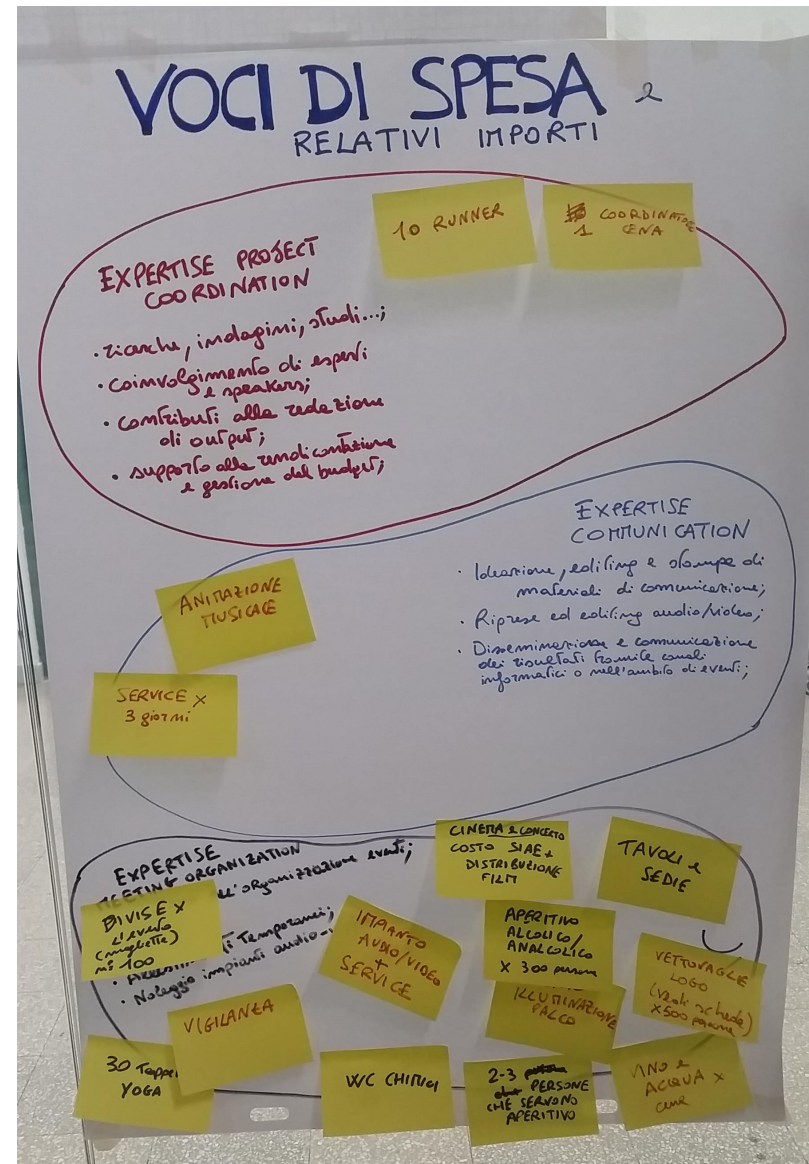 VOCI DI SPESA e
RELATIVI IMPORTI
10 RUNNER
1 COORDINATORE
CENA
EXPERTISE PROJECT
COORDINATION
· ricerche, indagini, studi...;
· coinvolgimento di esperti
e speakers;
· contributi alla redazione
di output;
· supporto alla rendicontazione
e gestione del budget;
EXPERTISE
COMMUNICATION
· Ideazione, editing e stampa di
materiali di comunicazione;
· Riprese ed editing audio/video;
· Disseminazione e comunicazione
dei risultati tramite canali
informatici o nell'ambito di eventi;
ANIMAZIONE
MUSICALE
SERVICE X
3 giorni
EXPERTISE
MEETING ORGANIZATION
organizzazione eventi;
temporanei;
· Noleggio impianti audio-
DIVISE X
L'evento
(magliette)
n° 100
CINEMA e CONCERTO
COSTO SIAE +
DISTRIBUZIONE
FILM
TAVOLI e
SEDIE
IMPIANTO
AUDIO/VIDEO
+
SERVICE
APERITIVO
ALCOLICO/
ANALCOLICO
X 300 persone
ILLUMINAZIONE
PALCO
VETTOVAGLIE
LOGO
(vedi scheda)
X500 persone
VIGILANZA
30 Tappe
YOGA
WC CHIMICI
2-3 PERSONE
CHE SERVONO
APERITIVO
VINO e
ACQUA X
cena